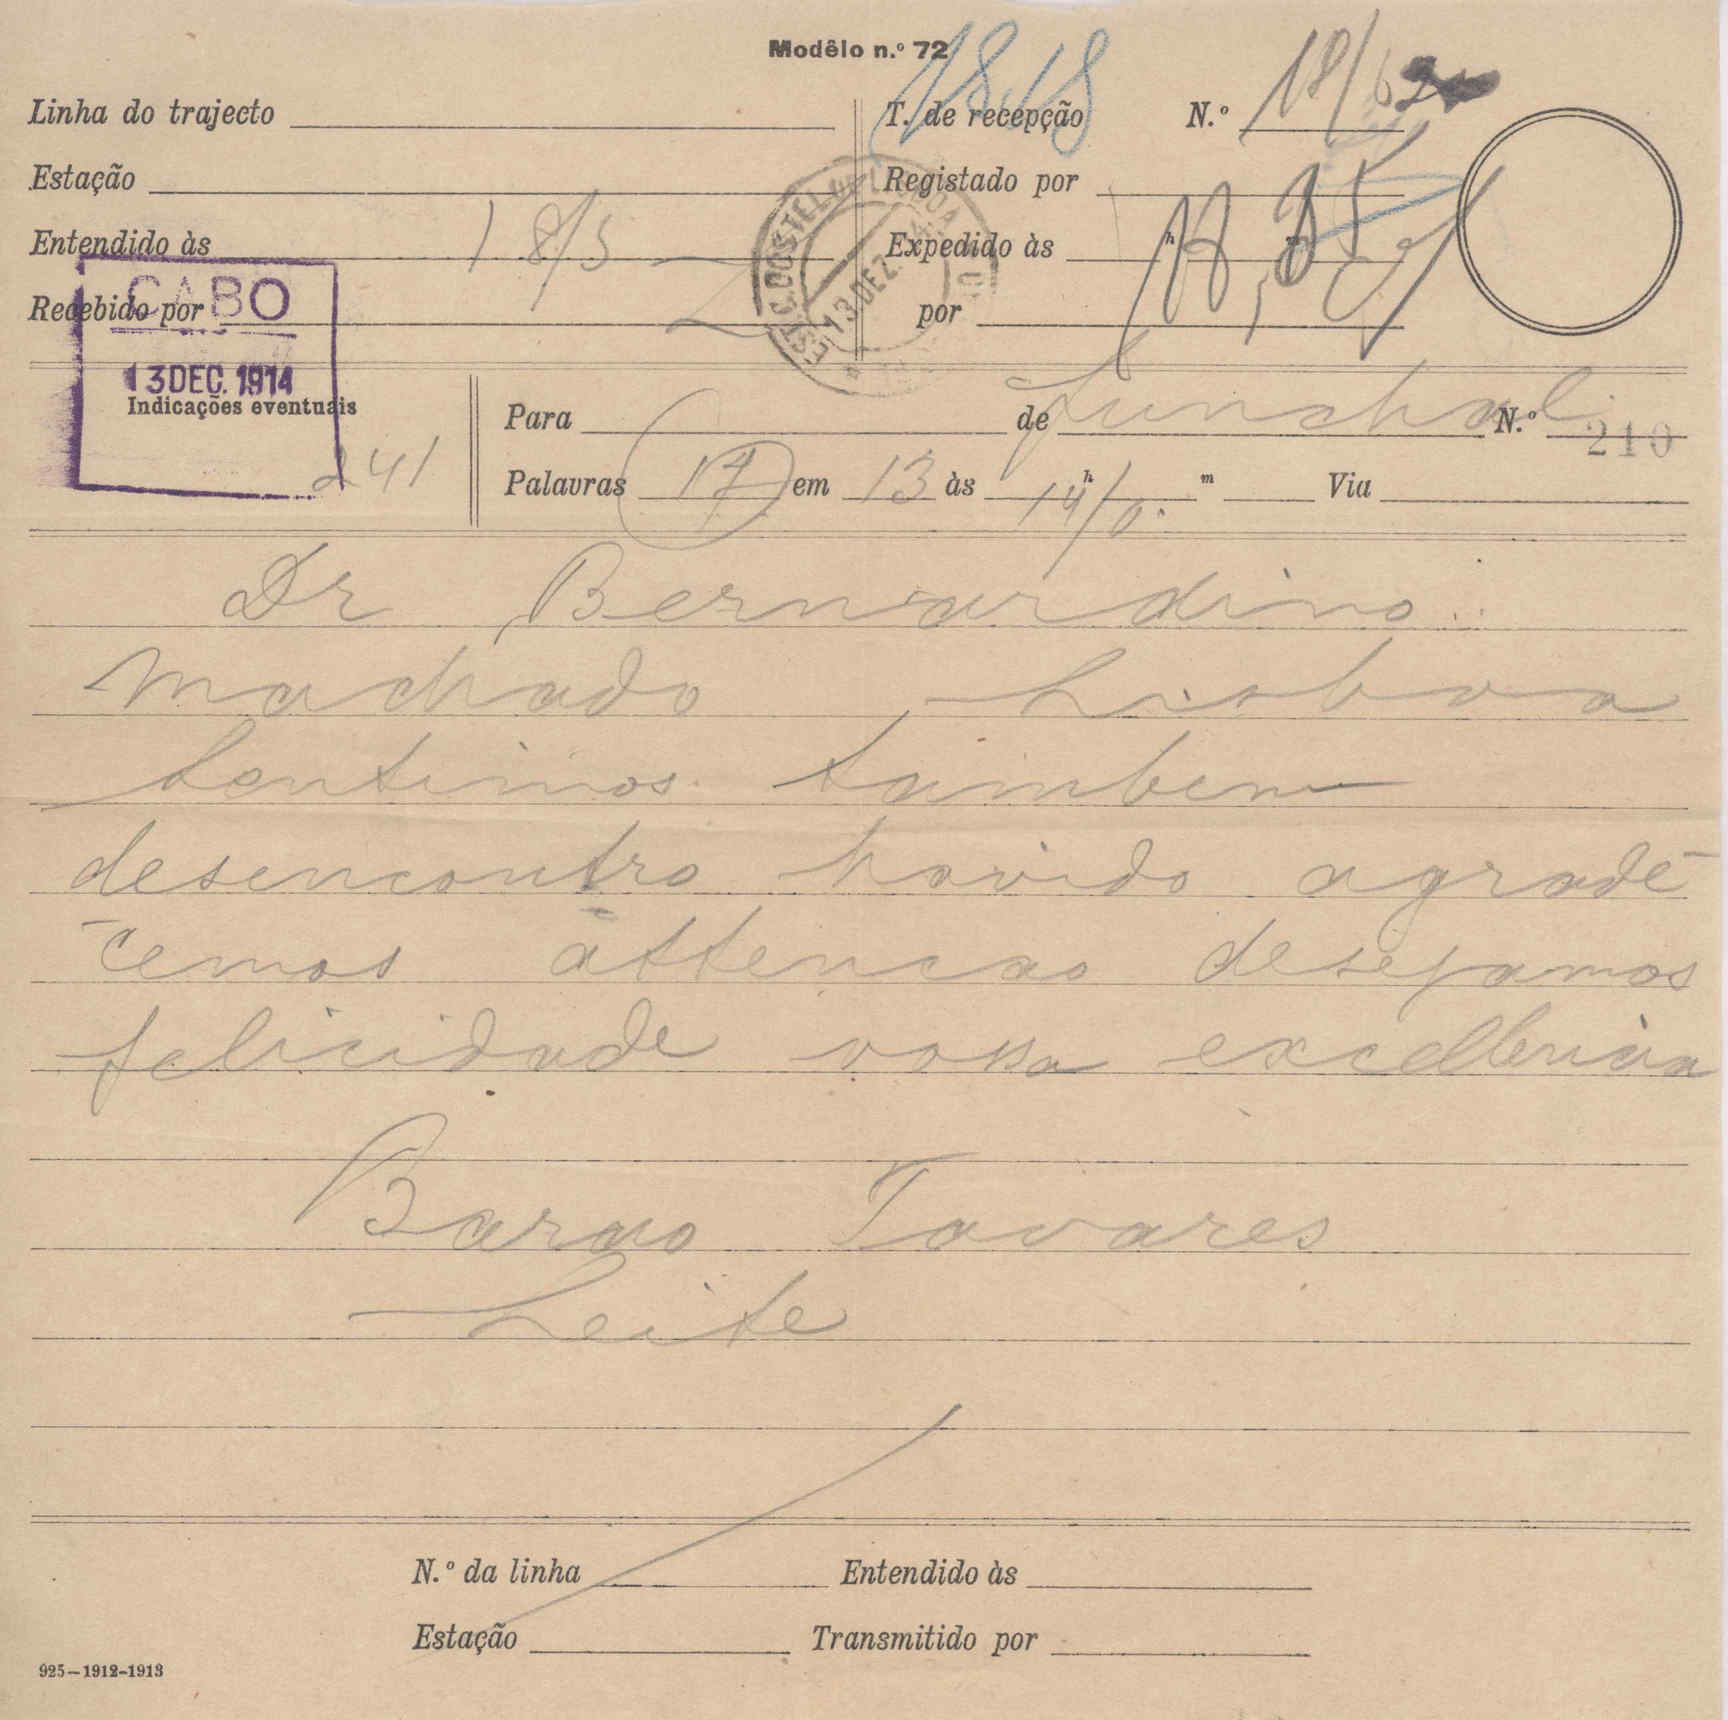 Modêlo n.º 72
1818
Linha do trajecto
T. de recepção
N.º 18/6
Estação
Registado por
Entendido às 18/5
Expedido às h m
Recebido por
por
CABO
13 DEC. 1914
EST. C. COS TEL. DE LISBOA
13 DEZ. 14
Indicações eventuais
241
Para de Funchal N.º 210
Palavras 17 em 13 às 14 h/0 m Via
Dr Bernardino
Machado Lisboa
Sentimos tambem
desencontro havido agrade-
-cemos attencao desejamos
felicidade vossa excellencia
Barao Tavares
Leite
N.º da linha
Entendido às
Estação
Transmitido por
925—1912-1913